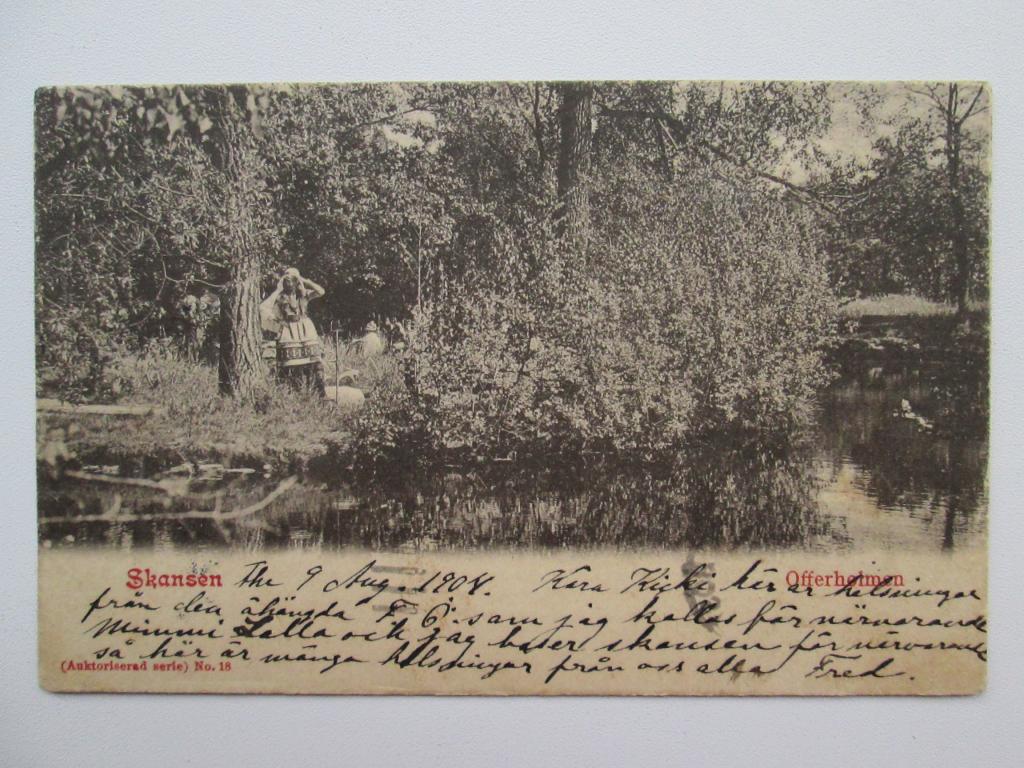 Skansen The 9 Aug. 1904. Kära Kicki här är hälsningar Offerholmen
från den F 6. som jag kallas för närvarande
Mimmi Lalla och jag skansen för närvarande
så här är många hälsningar från oss alla Fred.
(Auktoriserad serie) No. 18